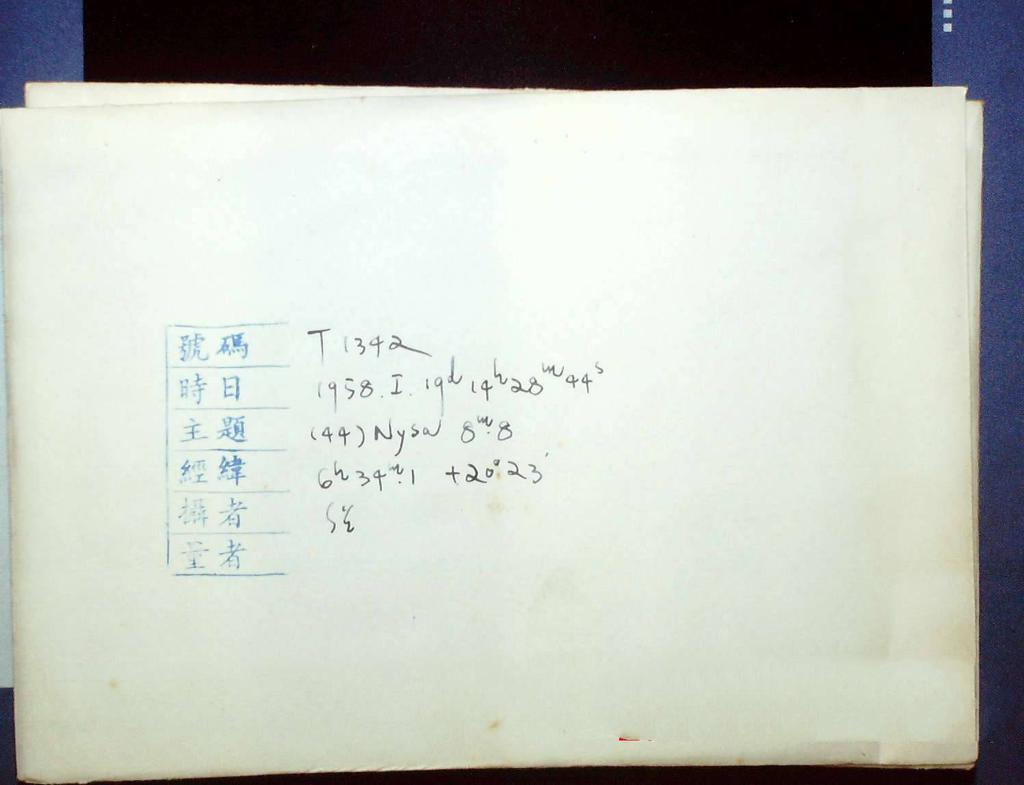 號碼 T 1342
時日 1958. I. 19ᵈ 14ʰ 28ᵐ 44ˢ
主題 (44) Nysa 8ᵐ.8
經緯 6ʰ 34ᵐ.1 +20°23′
攝者
量者